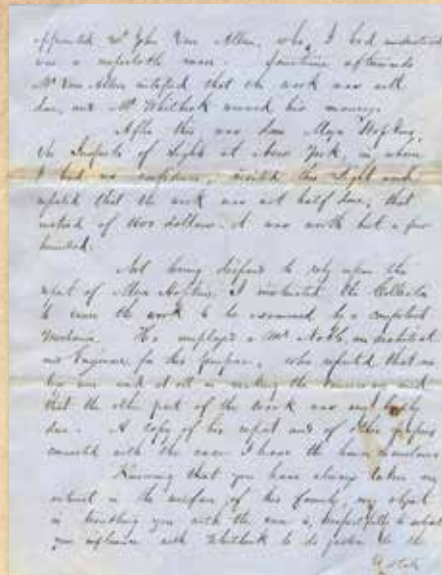 appointed Mr John Van Allen, who, I had understood
was a respectable man. Sometime afterwards
Mr Van Allen certified that the work was well
done, and Mr Whitlock received his money.
After this was done Major Hopkins,
the Inspector of Lights at New York, in whom
I had no confidence, visited this Light and
reported that the work was not half done, that
instead of 1600 dollars it was worth but a few
hundred.
Not being disposed to rely upon the
report of Major Hopkins, I instructed the Collector
to cause the work to be examined by a competent
Mechanic. He employed a Mr Noble, an Architect
and Engineer for this purpose, who reported that
was not at all
that the other part of the work was very badly
done. A copy of his report and of other papers
connected with the case I have the honor
Knowing that you have always taken an
interest in the welfare of his family, my object
in troubling you with the case is, respectfully to
your influence with Whitlock to do justice to the